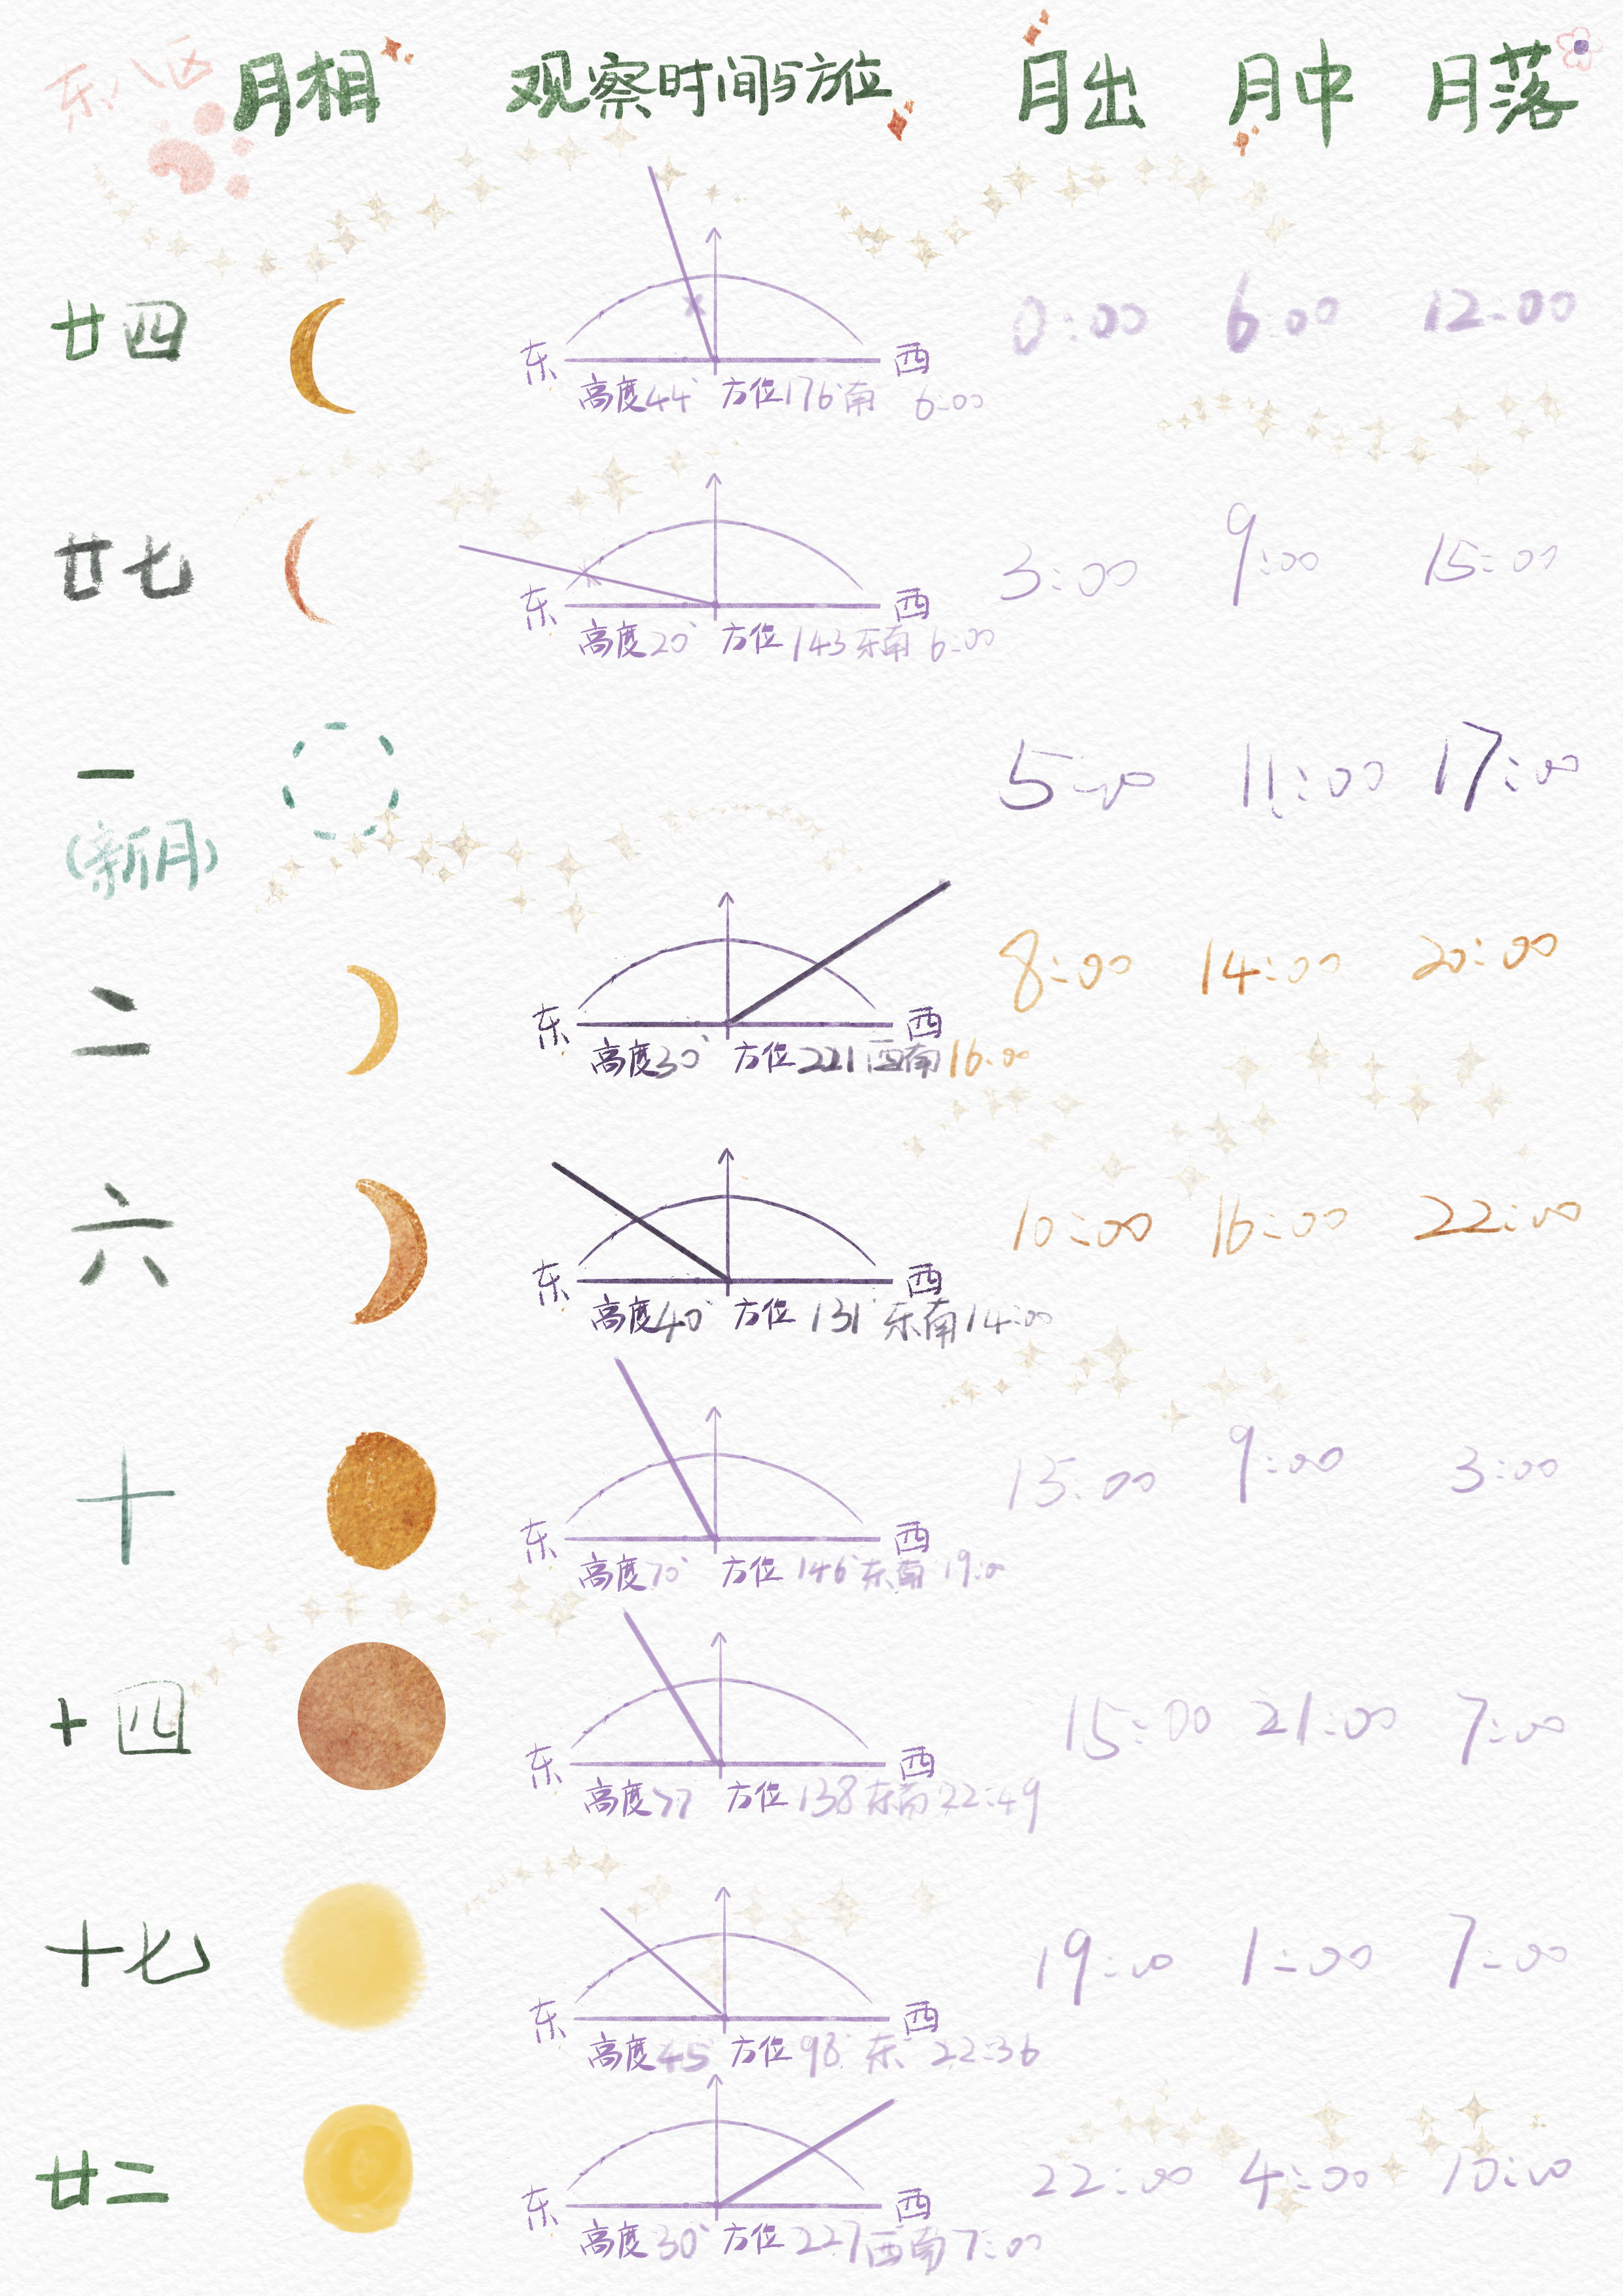 东八区 月相 观察时间与方位 月出 月中 月落
廿四 0:00 6:00 12:00
东 西
高度44° 方位176°南 6:00
廿七 3:00 9:00 15:00
东 西
高度20° 方位143东南 6:00
一 5:00 11:00 17:00
(新月)
二 8:00 14:00 20:00
东 西
高度30° 方位221西南16:00
六 10:00 16:00 22:00
东 西
高度40° 方位131°东南14:00
十 15:00 9:00 3:00
东 西
高度70° 方位146°东南 19:00
十四 15:00 21:00 7:00
东 西
高度77 方位138东南22:49
十七 19:00 1:00 7:00
东 西
高度45° 方位98°东 22:36
廿二 22:00 4:00 10:00
东 西
高度30° 方位227西南7:00